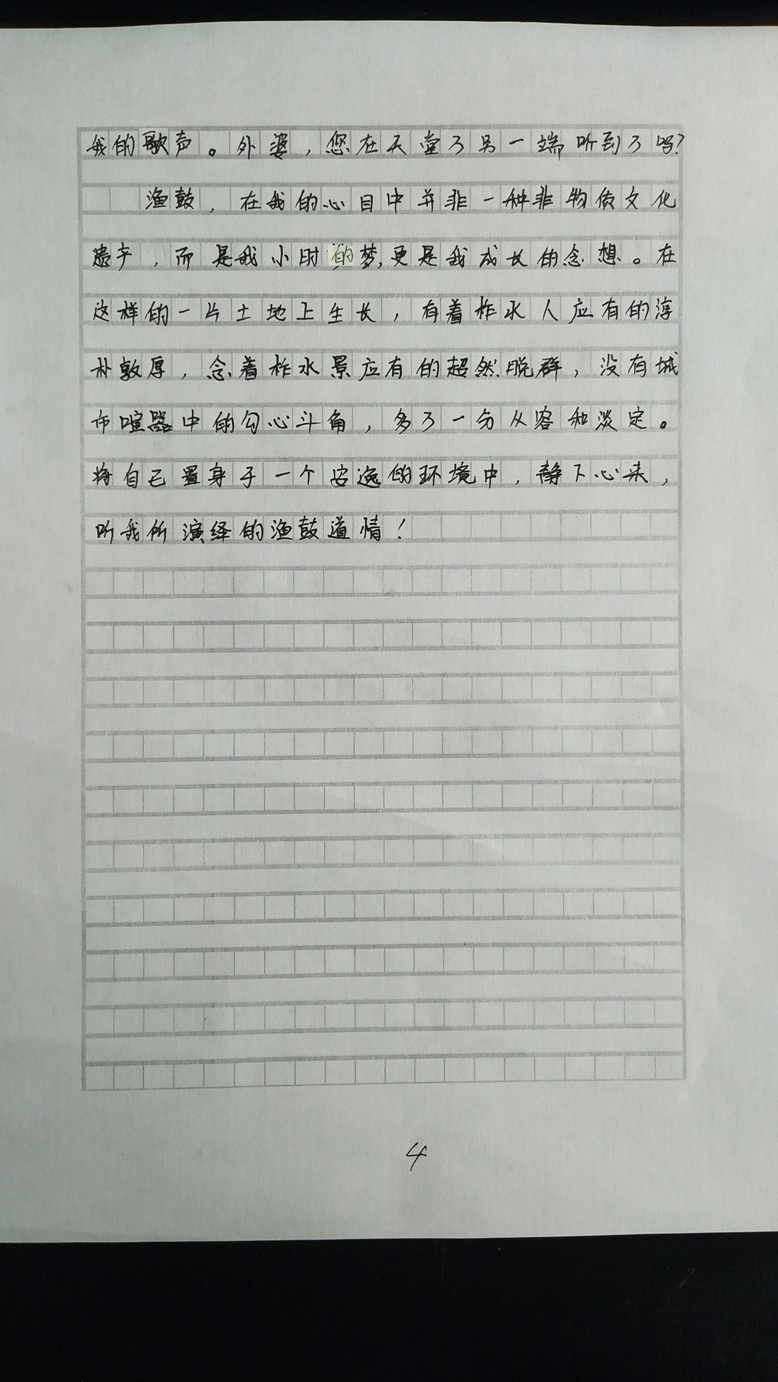 我的歌声。外婆，您在天堂了另一端听到了吗？
渔鼓，在我的心目中并非一种非物质文化
遗产，而是我小时的梦，更是我成长的念想。在
这样的一片土地上生长，有着柞水人应有的淳
朴敦厚，念着柞水景应有的超然脱群，没有城
市喧嚣中的勾心斗角，多了一分从容和淡定。
将自己置身于一个安逸的环境中，静下心来，
听我所演绎的渔鼓道情！
4